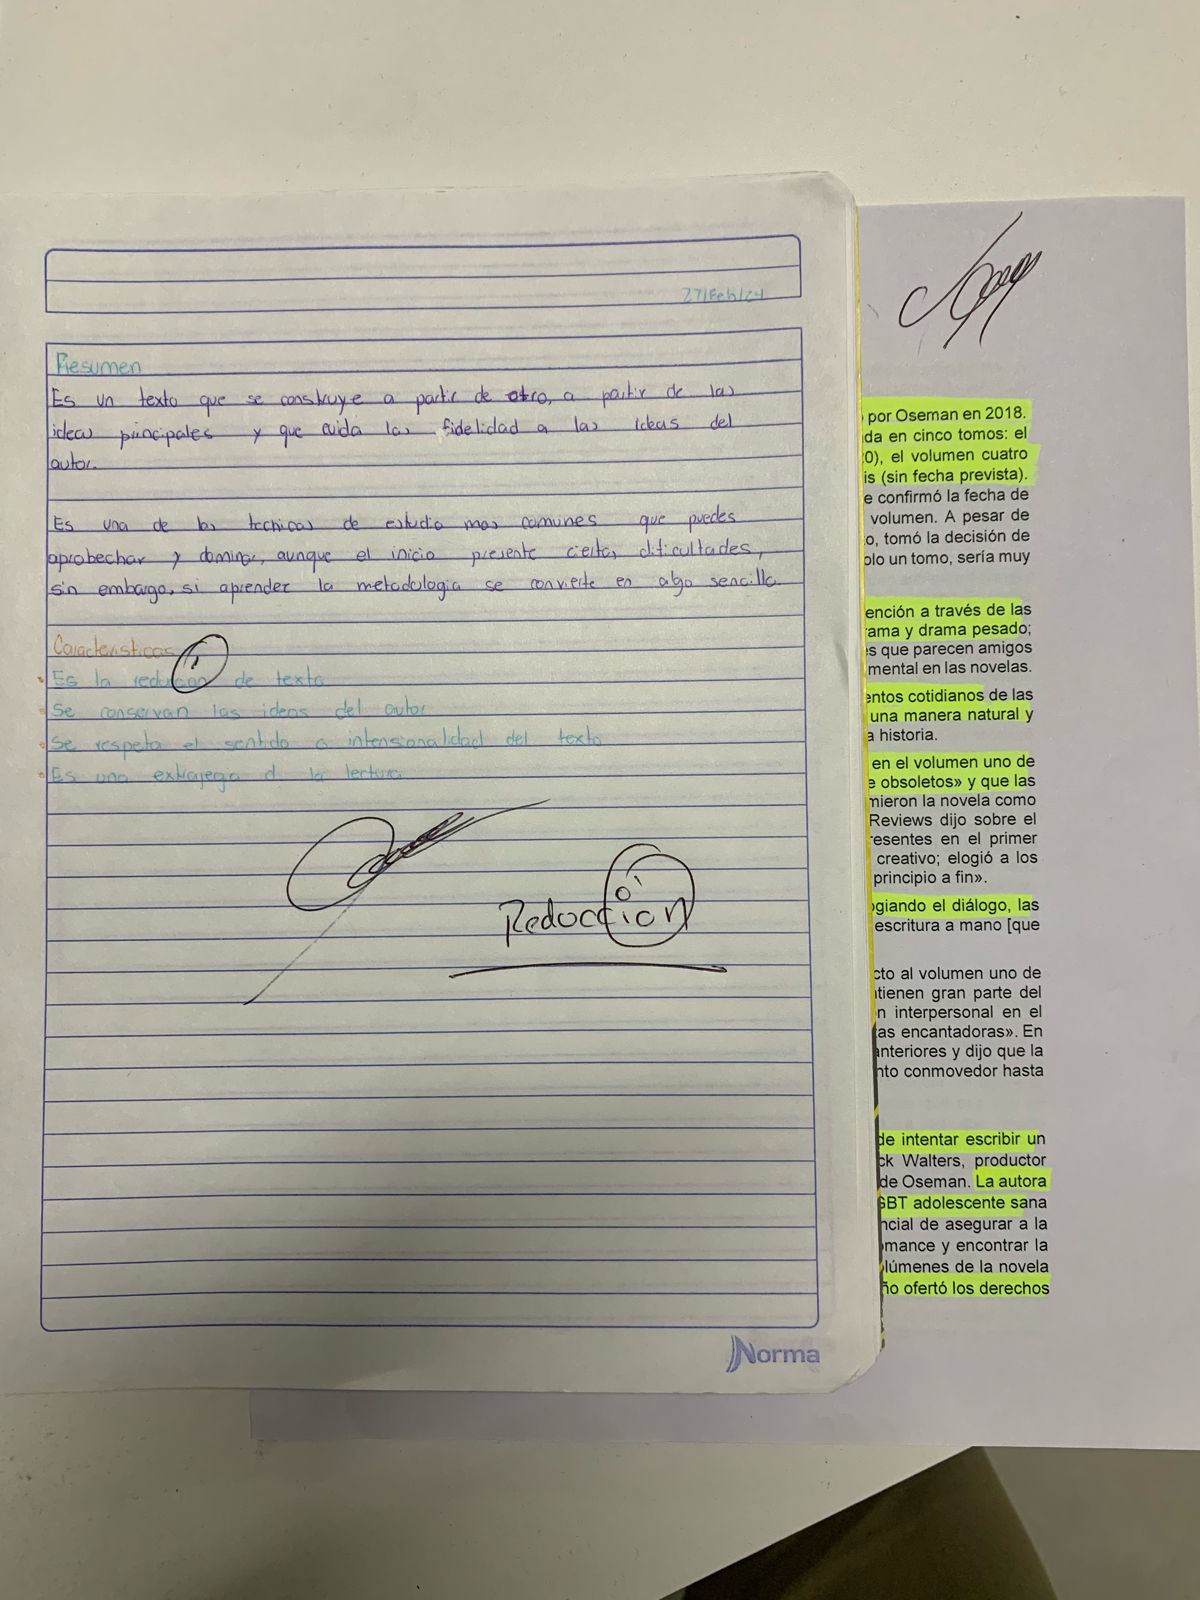 27/Feb/24
Resumen
Es un texto que se construye a partir de otro, a partir de las
ideas principales y que cuida las fidelidad a las ideas del
autor.
Es una de las tecnicas de estudio mas comunes que puedes
aprobechar y dominar, aunque el inicio presente ciertas dificultades,
sin embargo, si aprender la metodologia se convierte en algo sencilla
Caracteristicas
Es la reducion de texto
Se conservan las ideas del autor
Se respeta el sentido o intensionalidad del texto
Es una d la lectura
Reducción
Norma
por Oseman en 2018.
da en cinco tomos: el
0), el volumen cuatro
is (sin fecha prevista).
e confirmó la fecha de
volumen. A pesar de
o, tomó la decisión de
olo un tomo, sería muy
ención a través de las
rama y drama pesado;
es que parecen amigos
mental en las novelas.
entos cotidianos de las
una manera natural y
a historia.
en el volumen uno de
e obsoletos» y que las
mieron la novela como
Reviews dijo sobre el
resentes en el primer
creativo; elogió a los
principio a fin».
giando el diálogo, las
escritura a mano [que
cto al volumen uno de
tienen gran parte del
n interpersonal en el
as encantadoras». En
anteriores y dijo que la
nto conmovedor hasta
de intentar escribir un
ck Walters, productor
de Oseman. La autora
GBT adolescente sana
ncial de asegurar a la
omance y encontrar la
lúmenes de la novela
ño ofertó los derechos